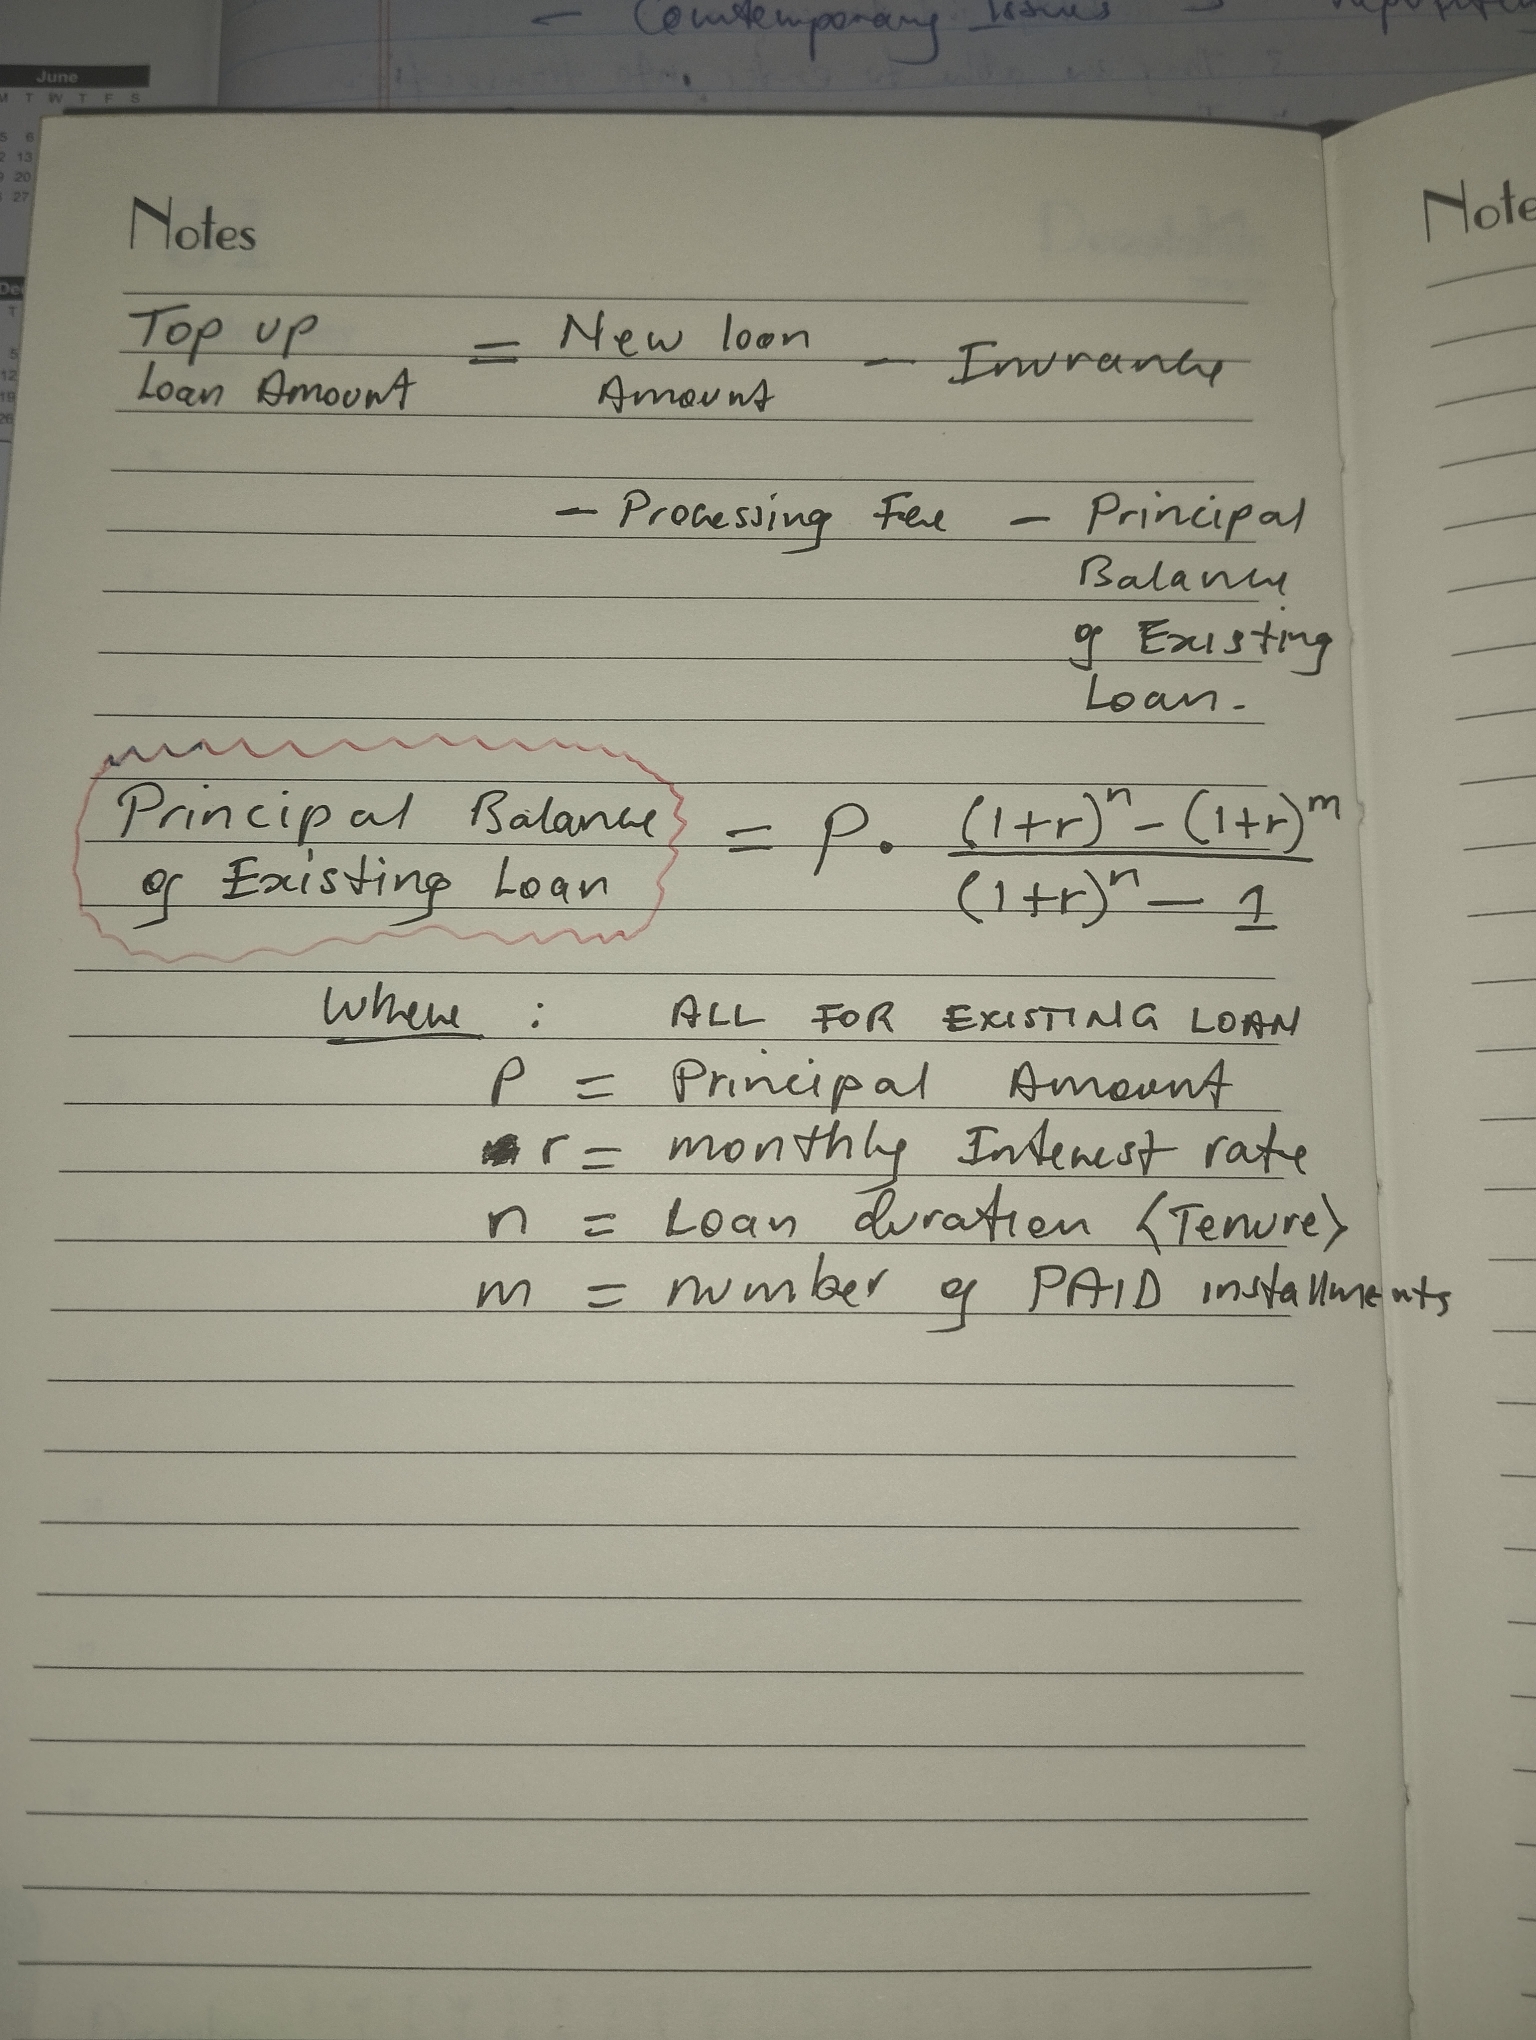 - Contemporary Issues
June
M T W T F S
5 6
2 13
9 20
27
Dec
T
5
12
19
26
Notes
Note
Top up Loan Amount = New loan Amount - Insurance
- Processing Fee - Principal
Balance
of Existing
Loan.
Principal Balance of Existing Loan = P. (1+r)^n - (1+r)^m / (1+r)^n - 1
Where : ALL FOR EXISTING LOAN
P = Principal Amount
r = monthly Interest rate
n = Loan duration (Tenure)
m = number of PAID installments